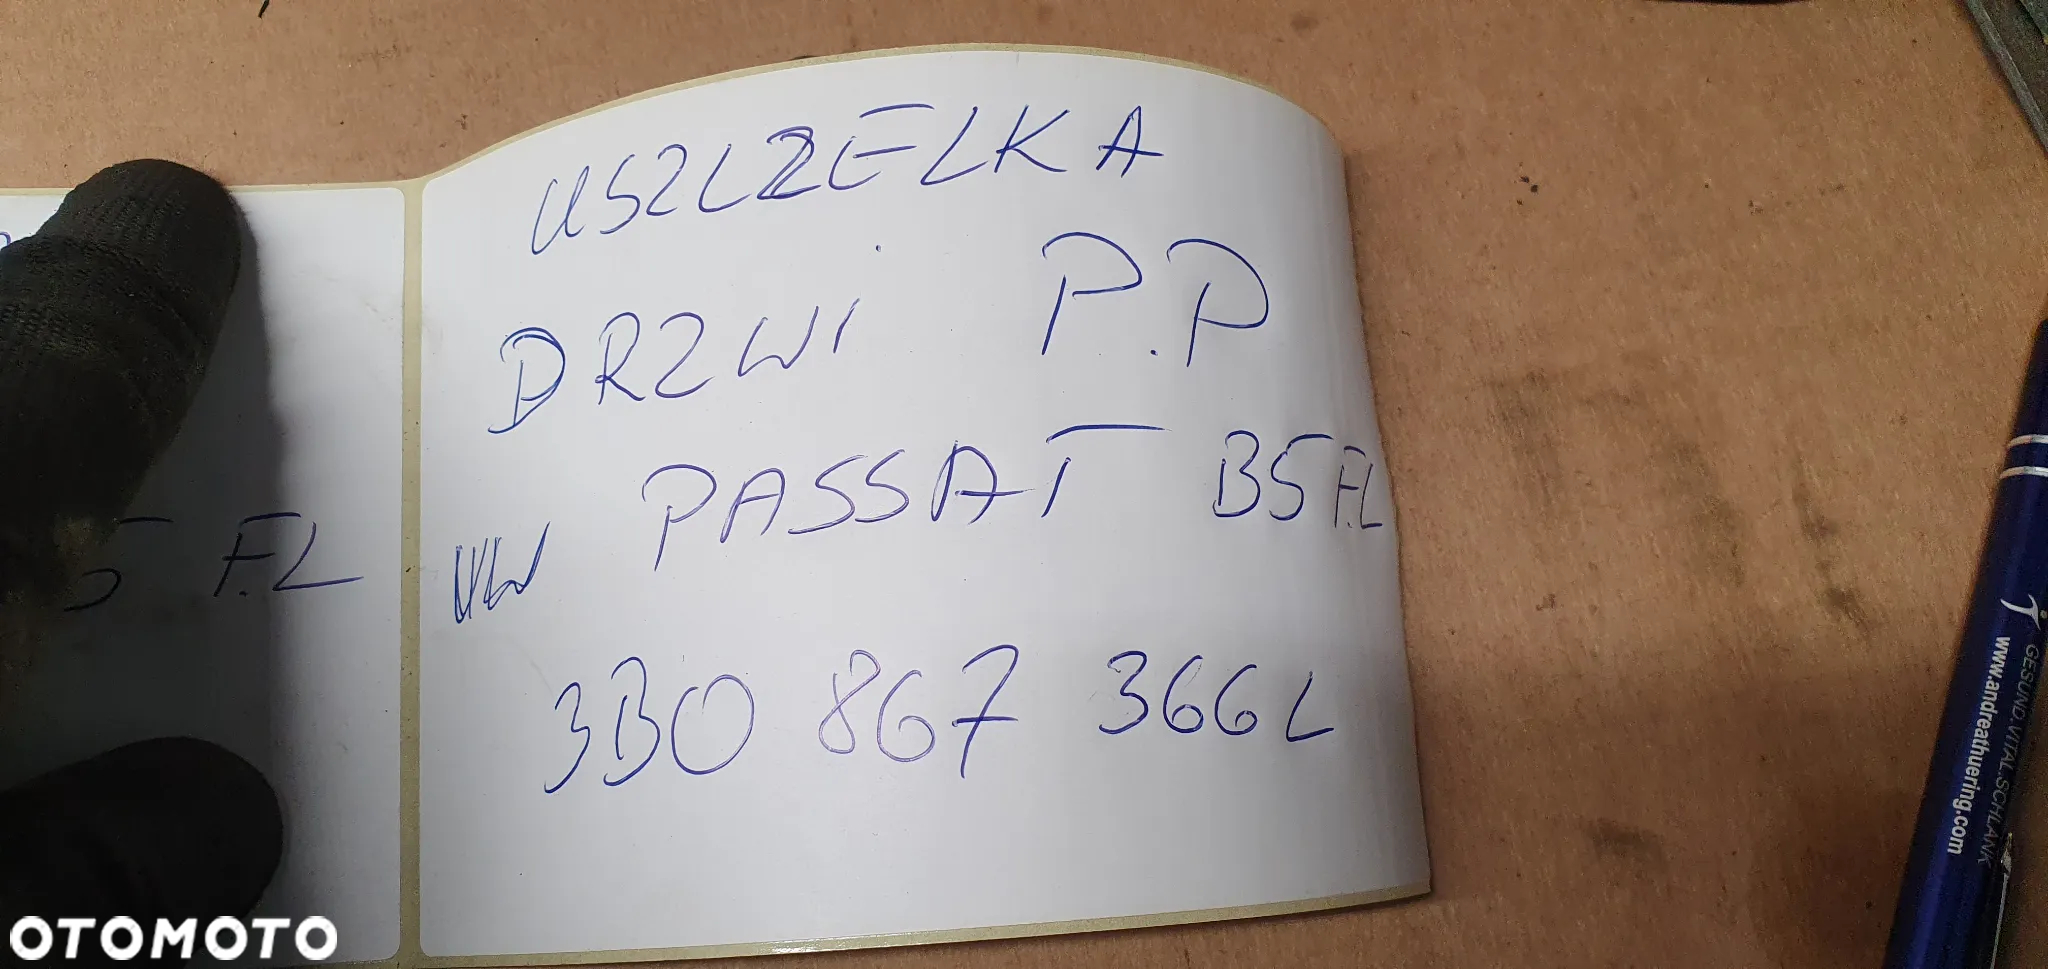 USZCZELKA
DRZWI P.P
VW PASSAT B5 F.L
3B0 867 366 L
5 F.L
GESUND.VITAL.SCHLANK
www.andreathuering.com
OTOMOTO